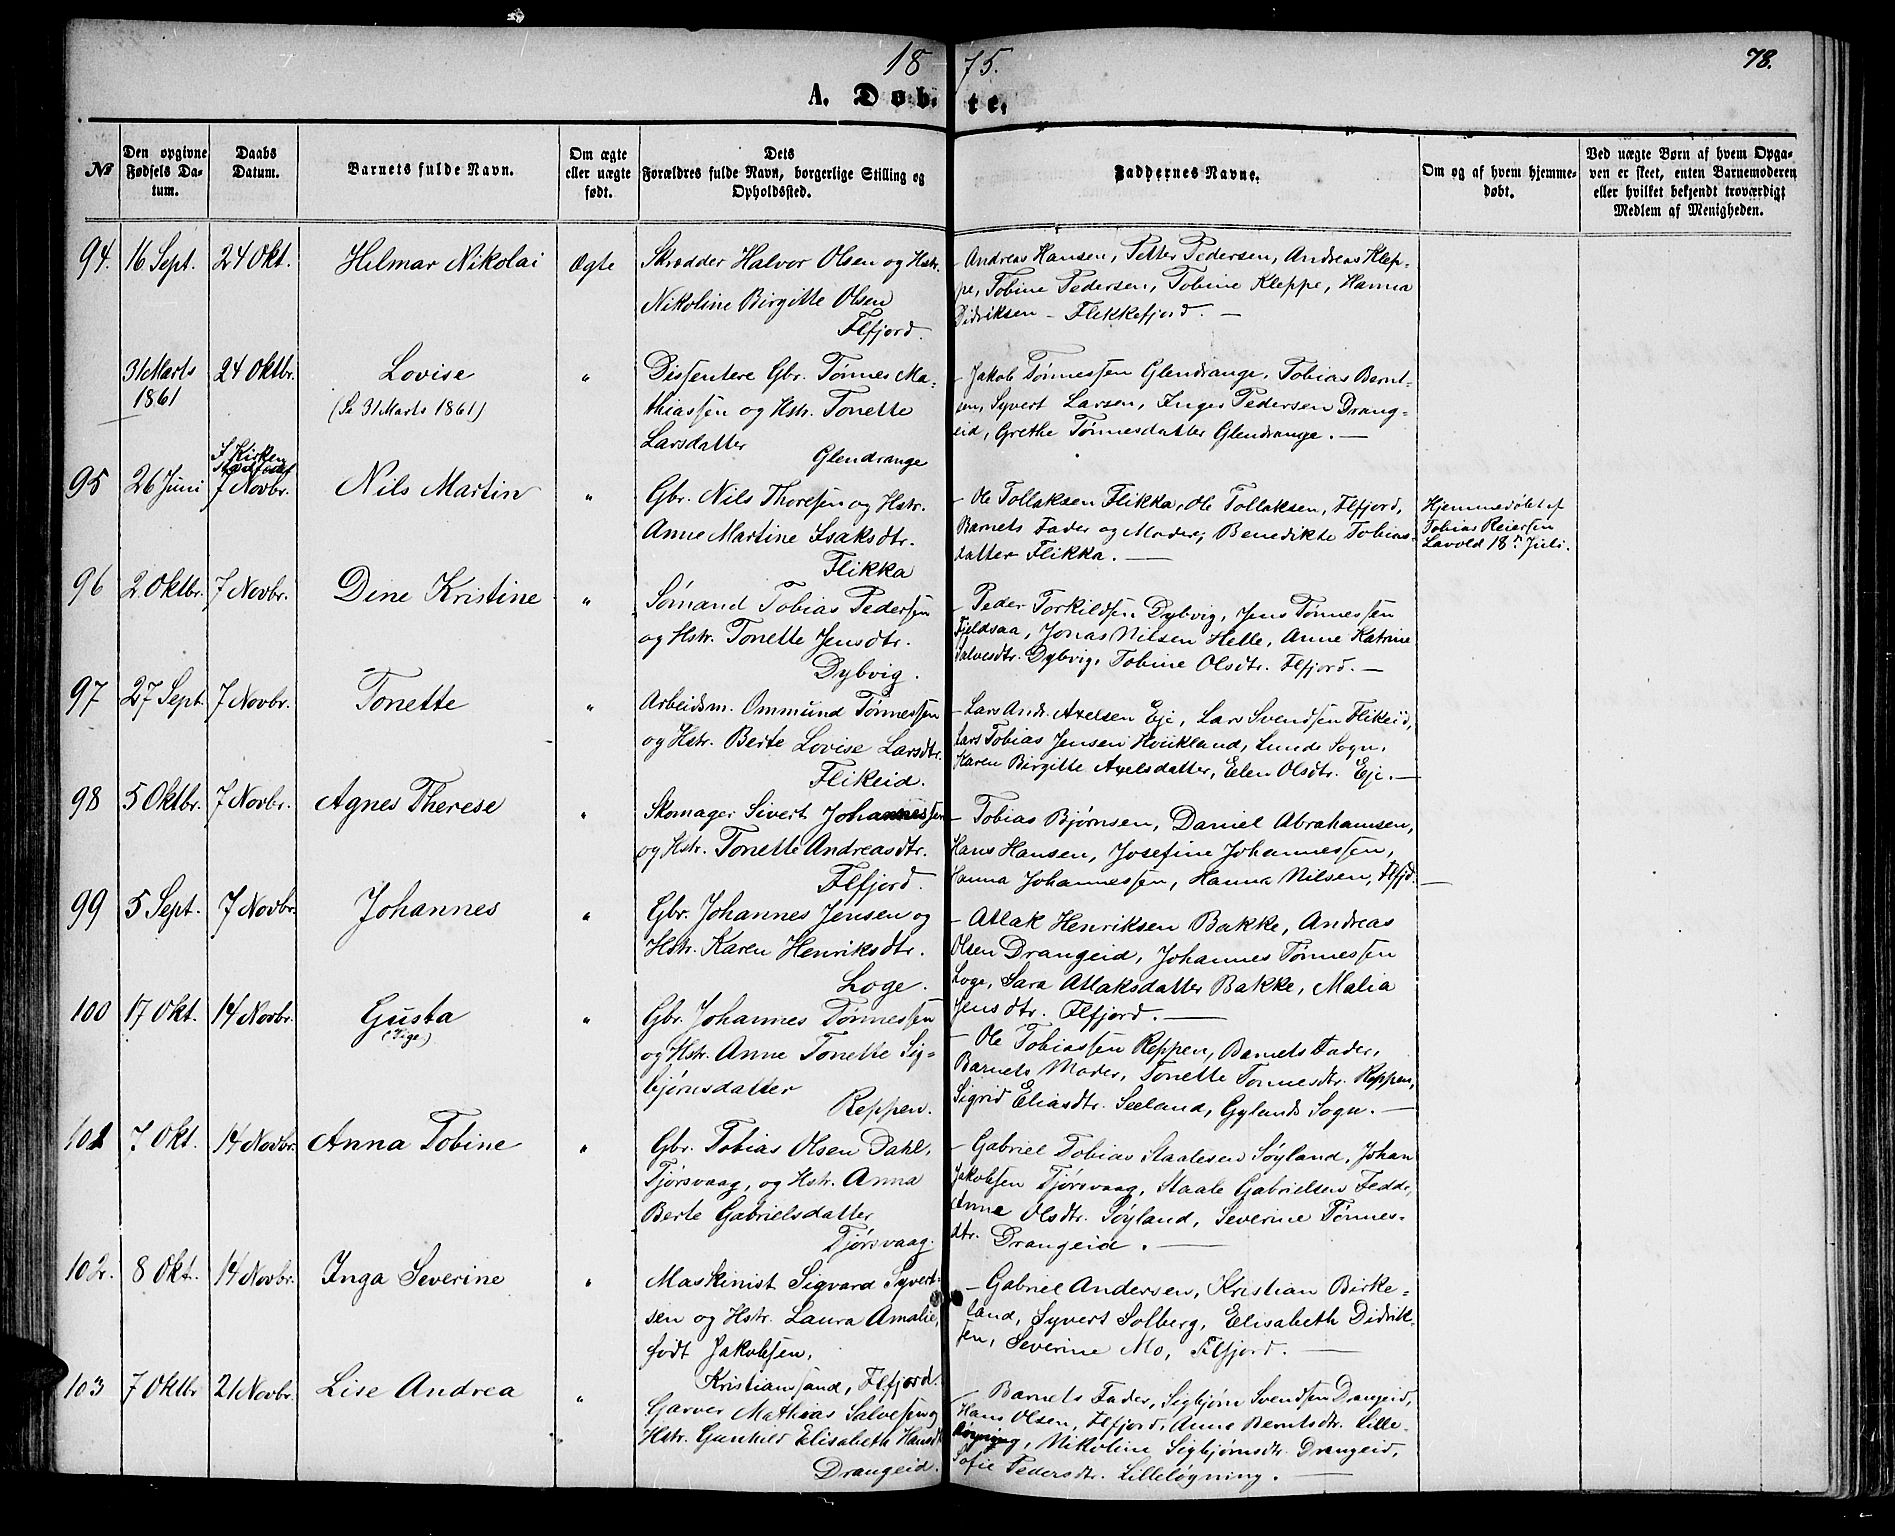 1875.
78.
A. Døbte.
№
Den opgivne Fødsels Datum.
Daabs Datum.
Barnets fulde Navn.
Om ægte eller uægte født.
Dets Forældres fulde Navn, borgerlige Stilling og Opholdssted.
Faddernes Navne.
Om og af hvem hjemmedøbt.
Ved uægte Børn af hvem Opgaven er skeet, enten Barnemoderen eller hvilket bekjendt troværdigt Medlem af Menigheden.
94. 16 Sept. 24 Okt. Hilmar Nikolai Ægte
Skrædder Halvor Olsen og Hstr.
Nikoline Birgitte Olsen
Flfjord.
- Andreas Hansen, Petter Pedersen, Andreas Klep-
pe, Tobine Pedersen, Tobine Kleppe, Hanna
Didriksen - Flekkefjord. -
31 Marts 1861 24 Oktbr. Lovise "
(Se 31 Marts 1861)
Dissentere Gbr. Tønnes Ma-
thiassen og Hstr. Tonette
Larsdatter
Glendrange
- Jakob Tønnessen Glendrange, Tobias Bernt-
sen, Syvert Larsen, Inger Pedersen Drang-
eid, Grethe Tønnesdatter Glendrange. -
I Kirken
95 26 Juni 7 Novbr. Nils Martin "
Gbr. Nils Thoresen og Hstr.
Anne Martine Isaksdtr.
Flikka
- Ole Tollaksen Flikka, Ole Tollaksen, Flfjord,
Barnets Fader og Moder, Benedikte Tobias-
datter Flikka. -
Hjemmedøbt af
Tobias Reiersen
Lavold 18de Juli.
96 2 Oktbr. 7 Novbr. Dine Kristine "
Sømand Tobias Pedersen
og Hstr. Tonette Jensdtr.
Dybvig.
- Peder Torkildsen Dybvig, Jens Tønnessen
Fjeldsaa, Jonas Nilsen Helle, Anne Katrine
Salvesdtr. Dybvig, Tobine Olsdtr. Flfjord. -
97 27 Sept. 7 Novbr. Tonette "
Arbeidsm. Ommund Tønnessen
og Hstr. Berte Lovise Larsdtr.
Flikeid.
- Lars Andr. Axelsen Eje, Lars Svendsen Flikeid,
Lars Tobias Jensen Hviikland, Lunds Sogn,
Karen Birgitte Axelsdatter, Elen Olsdtr. Eje. -
98 5 Oktbr. 7 Novbr. Agnes Therese "
Skomager Sivert Johannessen
og Hstr. Tonette Andreasdtr.
Flfjord.
- Tobias Bjørnsen, Daniel Abrahamsen,
Hans Hansen, Josefine Johannessen,
Hanna Johannessen, Hanna Nilsen, Flfjd. -
99 5 Sept. 7 Novbr. Johannes "
Gbr. Johannes Jensen og
Hstr. Karen Henriksdtr.
Loge.
- Atlak Henriksen Bakke, Andreas
Olsen Drangeid, Johannes Tønnessen
Loge, Sara Atlaksdatter Bakke, Malia
Jensdtr. Flfjord. -
100 17 Okt. 14 Novbr. Gusta "
(Pige)
Gbr. Johannes Tønnessen
og Hstr. Anne Tonette Sig-
bjørnsdatter
Reppen.
- Ole Tobiassen Reppen, Barnets Fader,
Barnets Moder, Tonette Tønnesdtr. Reppen,
Sigrid Eliasdtr. Seeland, Gylands Sogn. -
101 7 Okt. 14 Novbr. Anna Tobine "
Gbr. Tobias Olsen Dahl,
Tjørsvaag, og Hstr. Anna
Berte Gabrielsdatter
Tjørsvaag.
- Gabriel Tobias Staalesen Søyland, Johan
Jakobsen Tjørsvaag, Staale Gabrielsen Fedde,
Anne Olsdtr. Søyland, Severine Tønnes-
dtr. Drangeid. -
102. 8 Okt. 14 Novbr. Inga Severine "
Maskinist Sigvard Syvert-
sen og Hstr. Laura Amalie,
født Jakobsen,
Kristianssand, Flfjord.
- Gabriel Andersen, Kristian Birke-
land, Syvert Solberg, Elisabeth Didrik-
sen, Severine Mo, Flfjord. -
103 7 Oktbr 21 Novbr. Lise Andrea "
Garver Mathias Salvesen og
Hstr. Gunhild Elisabeth Hansdtr.
Drangeid.
- Barnets Fader, Sigbjørn Svendsen Drangeid,
Hans Olsen, Flfjord, Anna Berntsdtr. Lille-
løgning, Nikoline Sigbjørnsdtr. Drangeid,
Sofie Pedersdtr. Lilleløgning. -